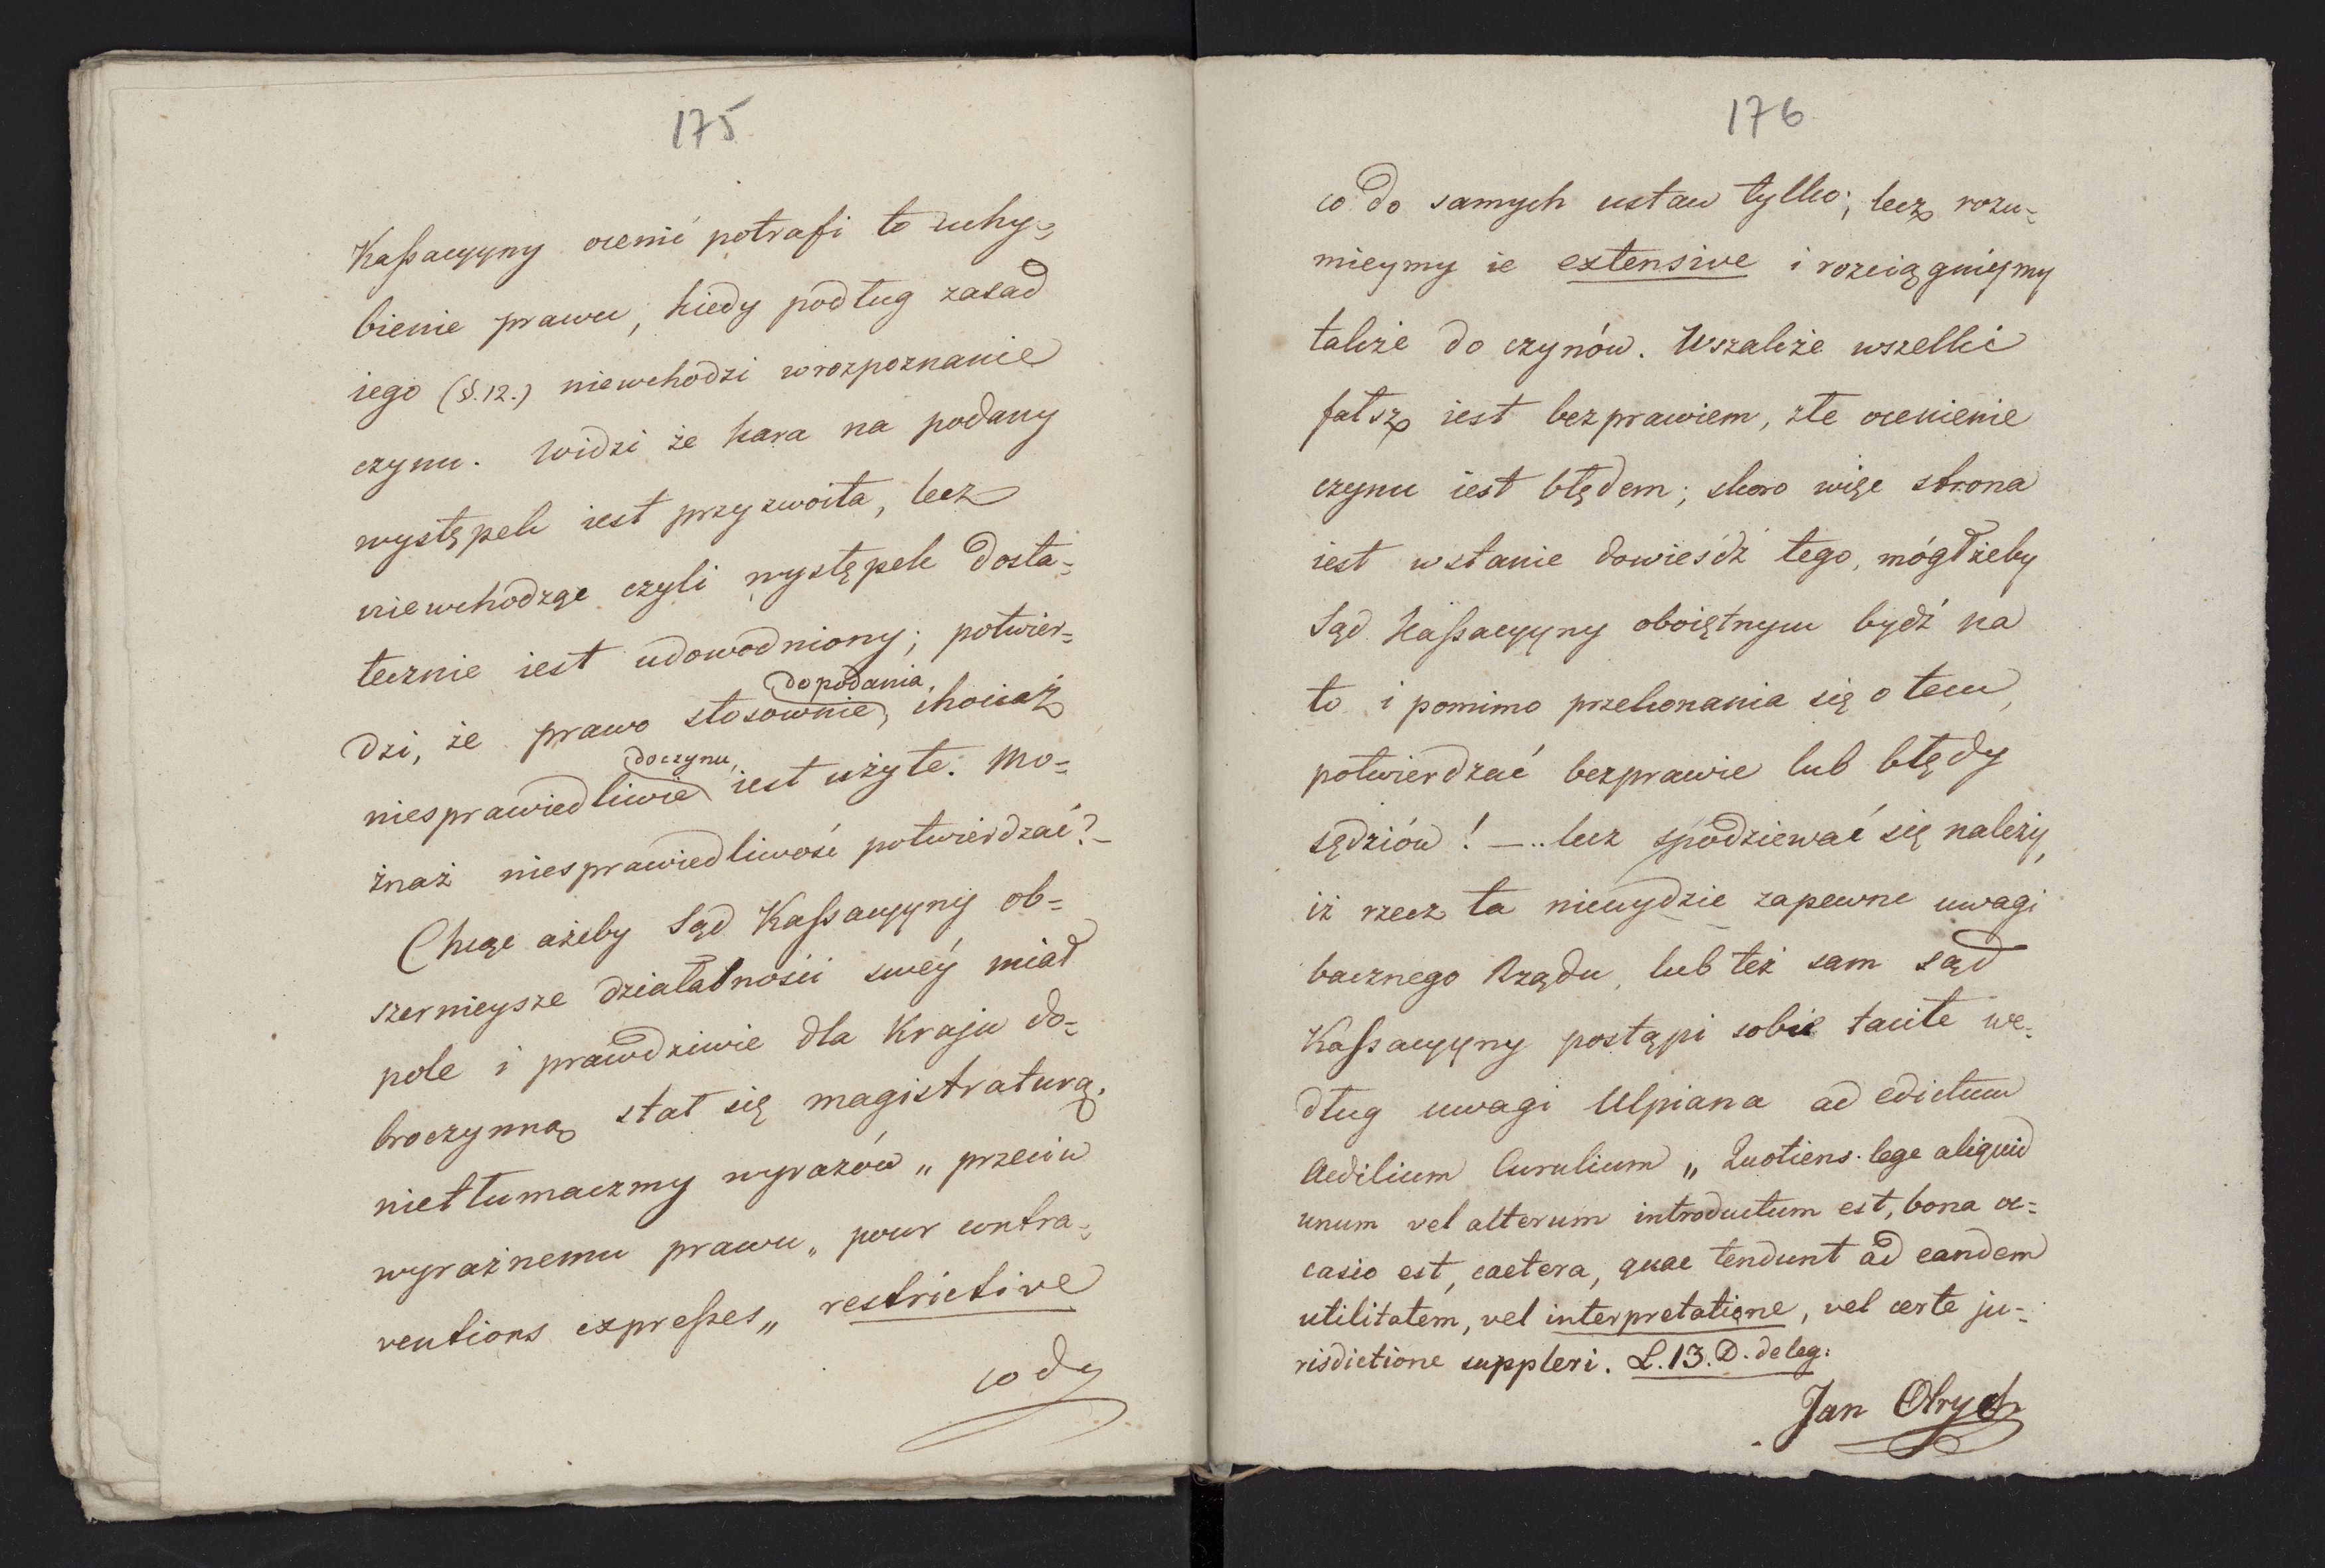 175
Kaßacyyny ocenić potrafi to uchy=
bienie prawu, kiedy podług zasad
iego (§.12.) niewchodzi w rozpoznanie
czynu. Widzi że kara na podany
występek iest przyzwoita, lecz
niewchodząc czyli występek dosta=
tecznie iest udowodniony; potwier=
dopodania,
dzi, że prawo stosownie, chociaż
doczynu,
niesprawiedliwie iest użyte. Mo=
żnaż niesprawiedliwość potwierdzać? –
Chcąc ażeby Sąd Kaßacyyny ob=
szernieysze działalności swéy miał
pole i prawdziwie dla Kraju do=
broczynną stał się magistraturą,
nietłumaczmy wyrazów „ przeciw
wyraźnemu prawu „ pour contra=
ventions expreßes „ restrictive
co do
176
co do samych ustaw tylko; lecz rozu=
mieymy ie extensive i rozciągniymy
także do czynów. Wszakże wszelki
fałsz iest bezprawiem, złe ocenienie
czynu iest błędem; skoro więc strona
iest wstanie dowieśdź tego, mógłżeby
Sąd Kaßacyyny oboiętnym bydź na
to i pomimo przekonania się o tem,
potwierdzać bezprawie lub błędy
sędziów! –.. lecz spodziewać się należy,
iż rzecz ta nieuydzie zapewne uwagi
bacznego Rządu, lub też sam sąd
Kaßacyyny postąpi sobie tacite we=
dług uwagi Ulpiana ad edictum
Aedilium Curulium „ Quotiens lege aliquid
unum vel alterum introductum est, bona oc=
casio est, caetera, quae tendunt ad eandem
utilitatem, vel interpretatione, vel certe ju=
risdictione suppleri. L. 13. D. de leg:
Jan Olrych